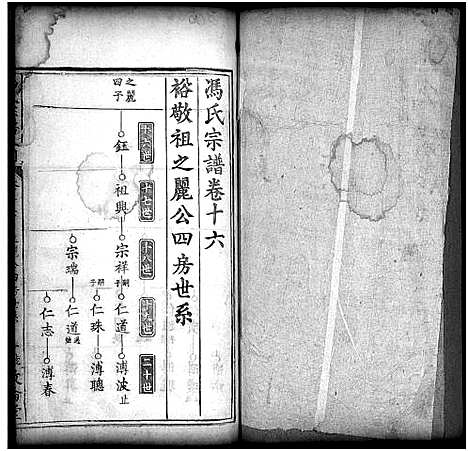 馮氏宗譜卷十六
裕敬祖之麗公四房世系
十六世
十七世
十八世
十九世
二十世
之麗
四子
鈺
祖興
宗祥
嗣子
仁道
溥波
止
嗣子
仁珠
溥聰
宗瑞
仁道
仁志
溥春